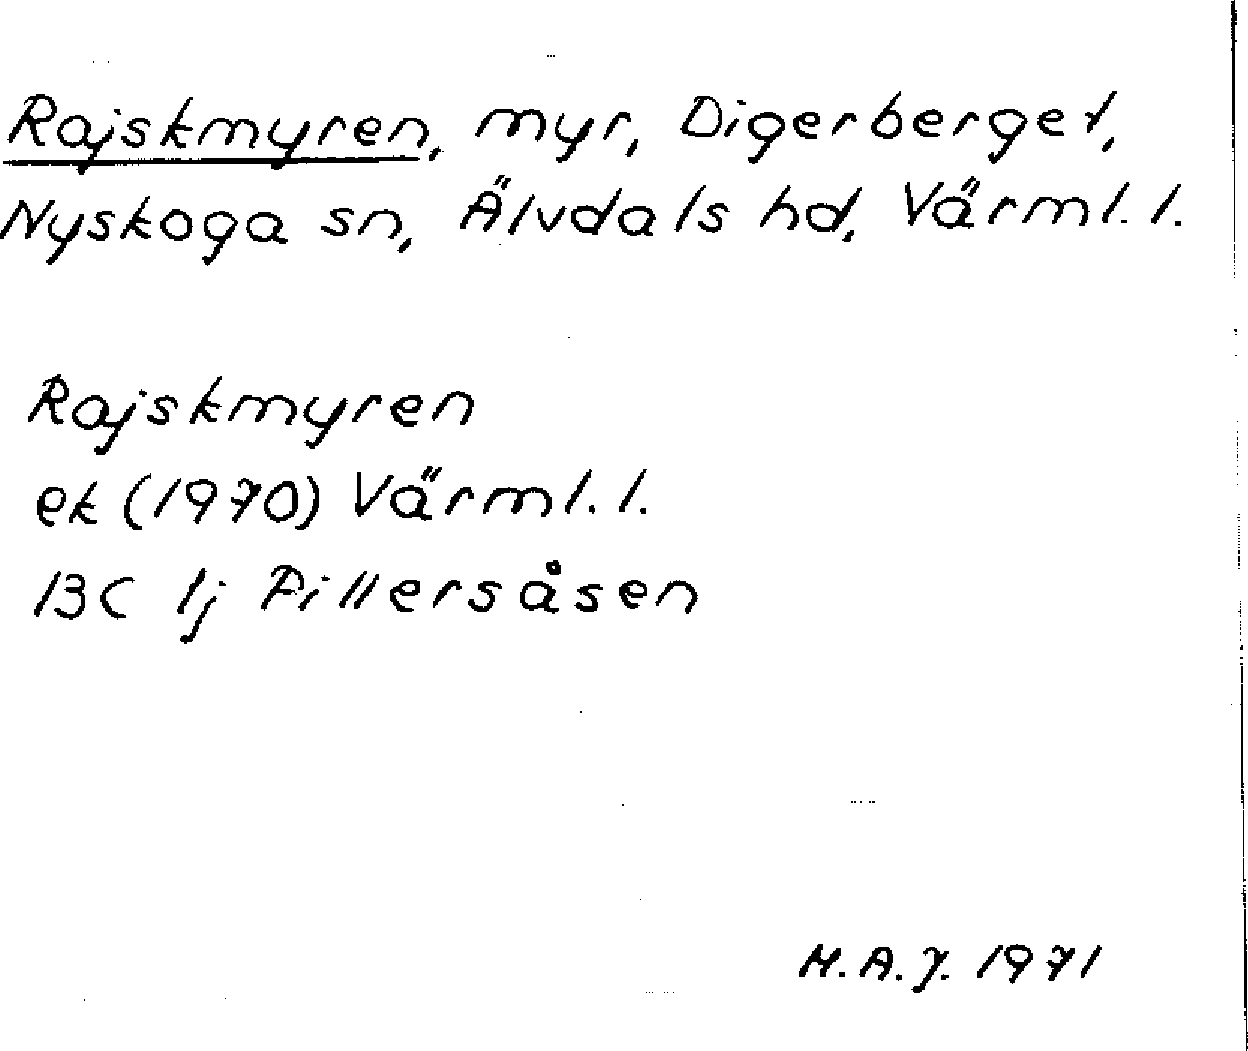 Rajskmyren, myr, Digerberget,
Nyskoga sn, Älvdals hd, Värml. l.
Rajskmyren
ek (1970) Värml. l.
13C 1j Pillersåsen
H.A.J. 1971